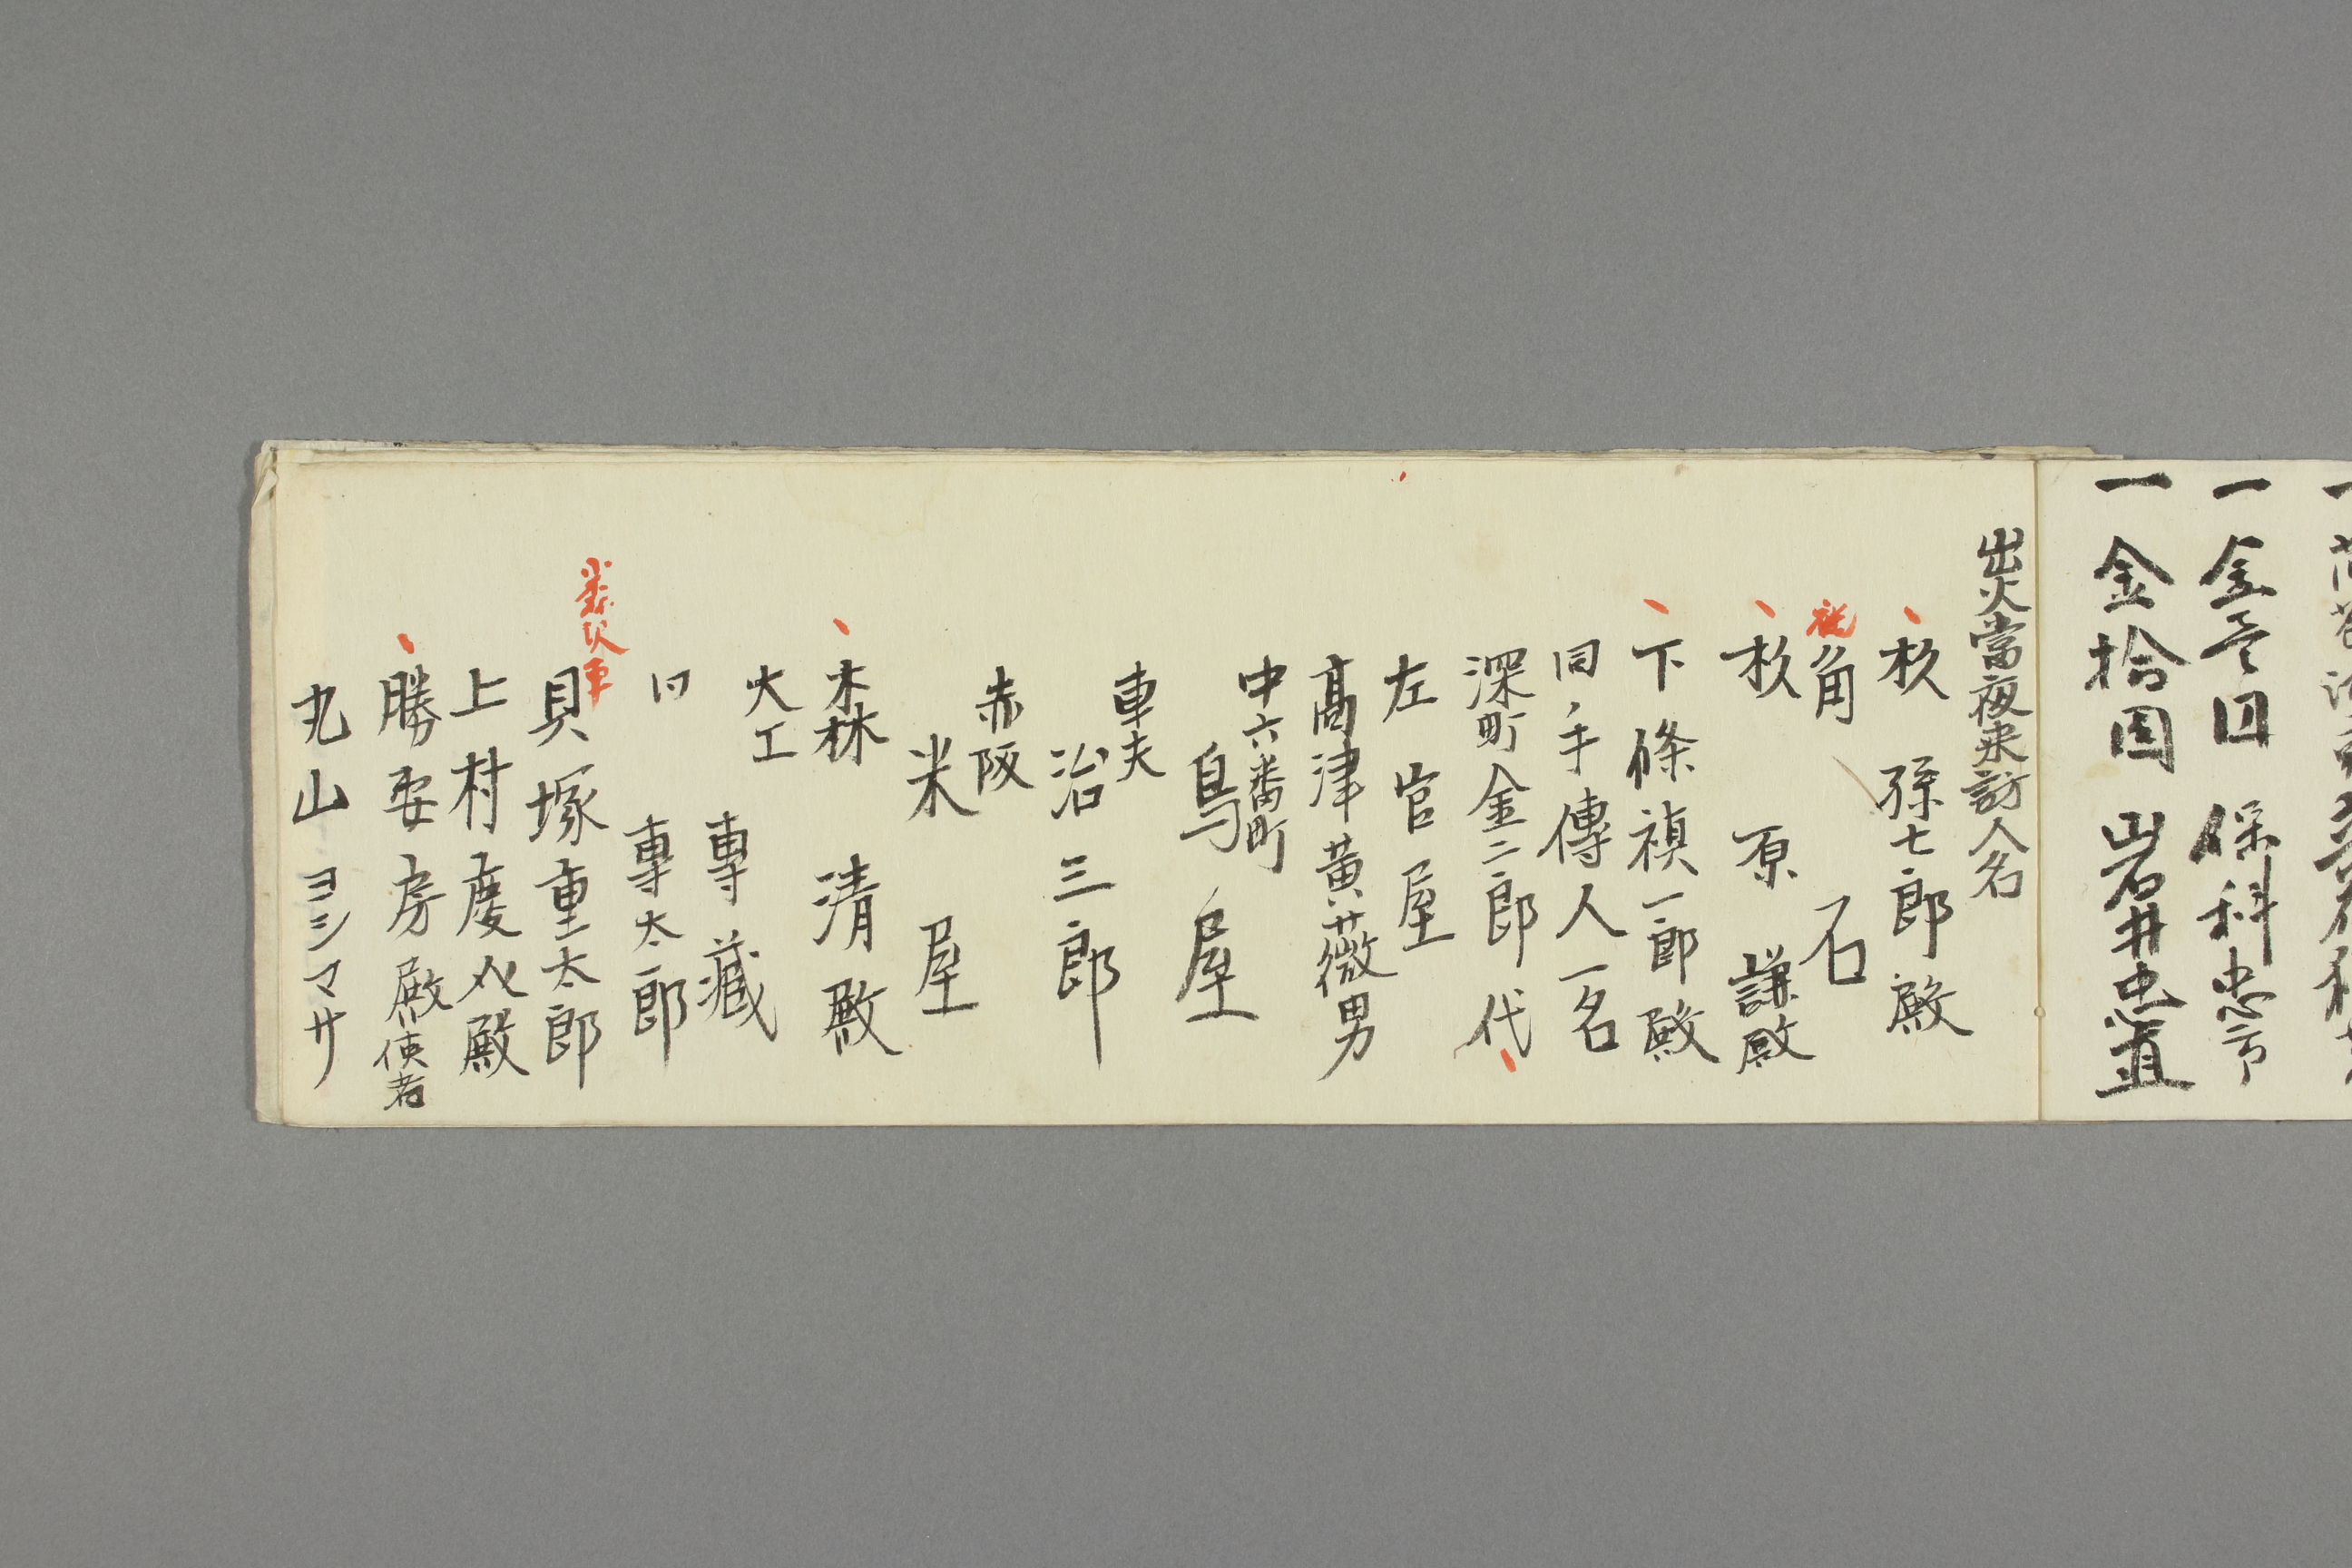 一金壱円 保科忠
一金拾円 岩井忠直
出火當夜来訪人名
杦 孫七郎殿
角 石
杦 原 謙殿
下條禎一郎殿
同手傳人一名
深町金二郎代
左官屋
髙津黄薇男
中六番町
鳥屋
車夫
治三郎
赤阪
米屋
森 清殿
大工
專藏
〃 專太郎
貝塚重太郎
上村慶八殿
勝安房殿使者
丸山 ヨシマサ